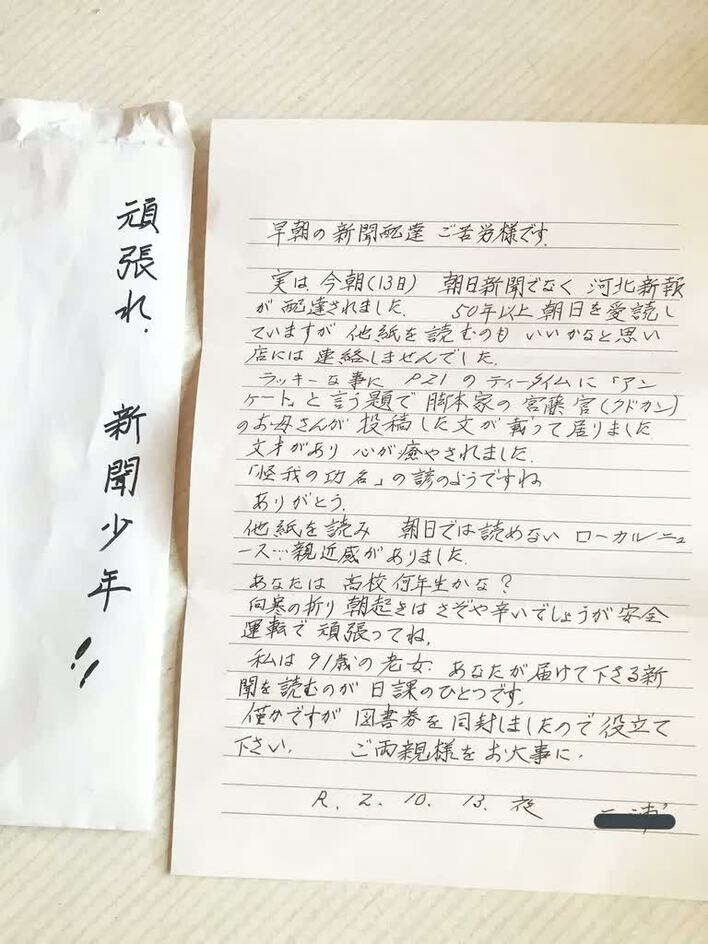 頑張れ. 新聞少年!!
早朝の新聞配達 ご苦労様です.
実は今朝(13日) 朝日新聞でなく 河北新報
が配達されました. 50年以上朝日を愛読し
ていますが 他紙を読むのも いいかなと思い
店には 連絡しませんでした.
ラッキーな事に P21のティータイムに「アン
ケート」と言う題で 脚本家の宮藤官(クドカン)
のお母さんが 投稿した文が 載って居りました
文才があり 心が癒やされました.
「怪我の功名」の諺のようですね
ありがとう.
他紙を読み 朝日では読めない ローカルニュ
ース…親近感がありました.
あなたは 高校何年生かな?
向寒の折り 朝起きは さぞや辛いでしょうが 安全
運転で 頑張ってね.
私は 91歳の老女. あなたが届けて下さる新
聞を読むのが 日課のひとつです.
僅かですが 図書券を同封しましたので 役立て
下さい. ご両親様をお大事に.
R. 2. 10. 13. 夜